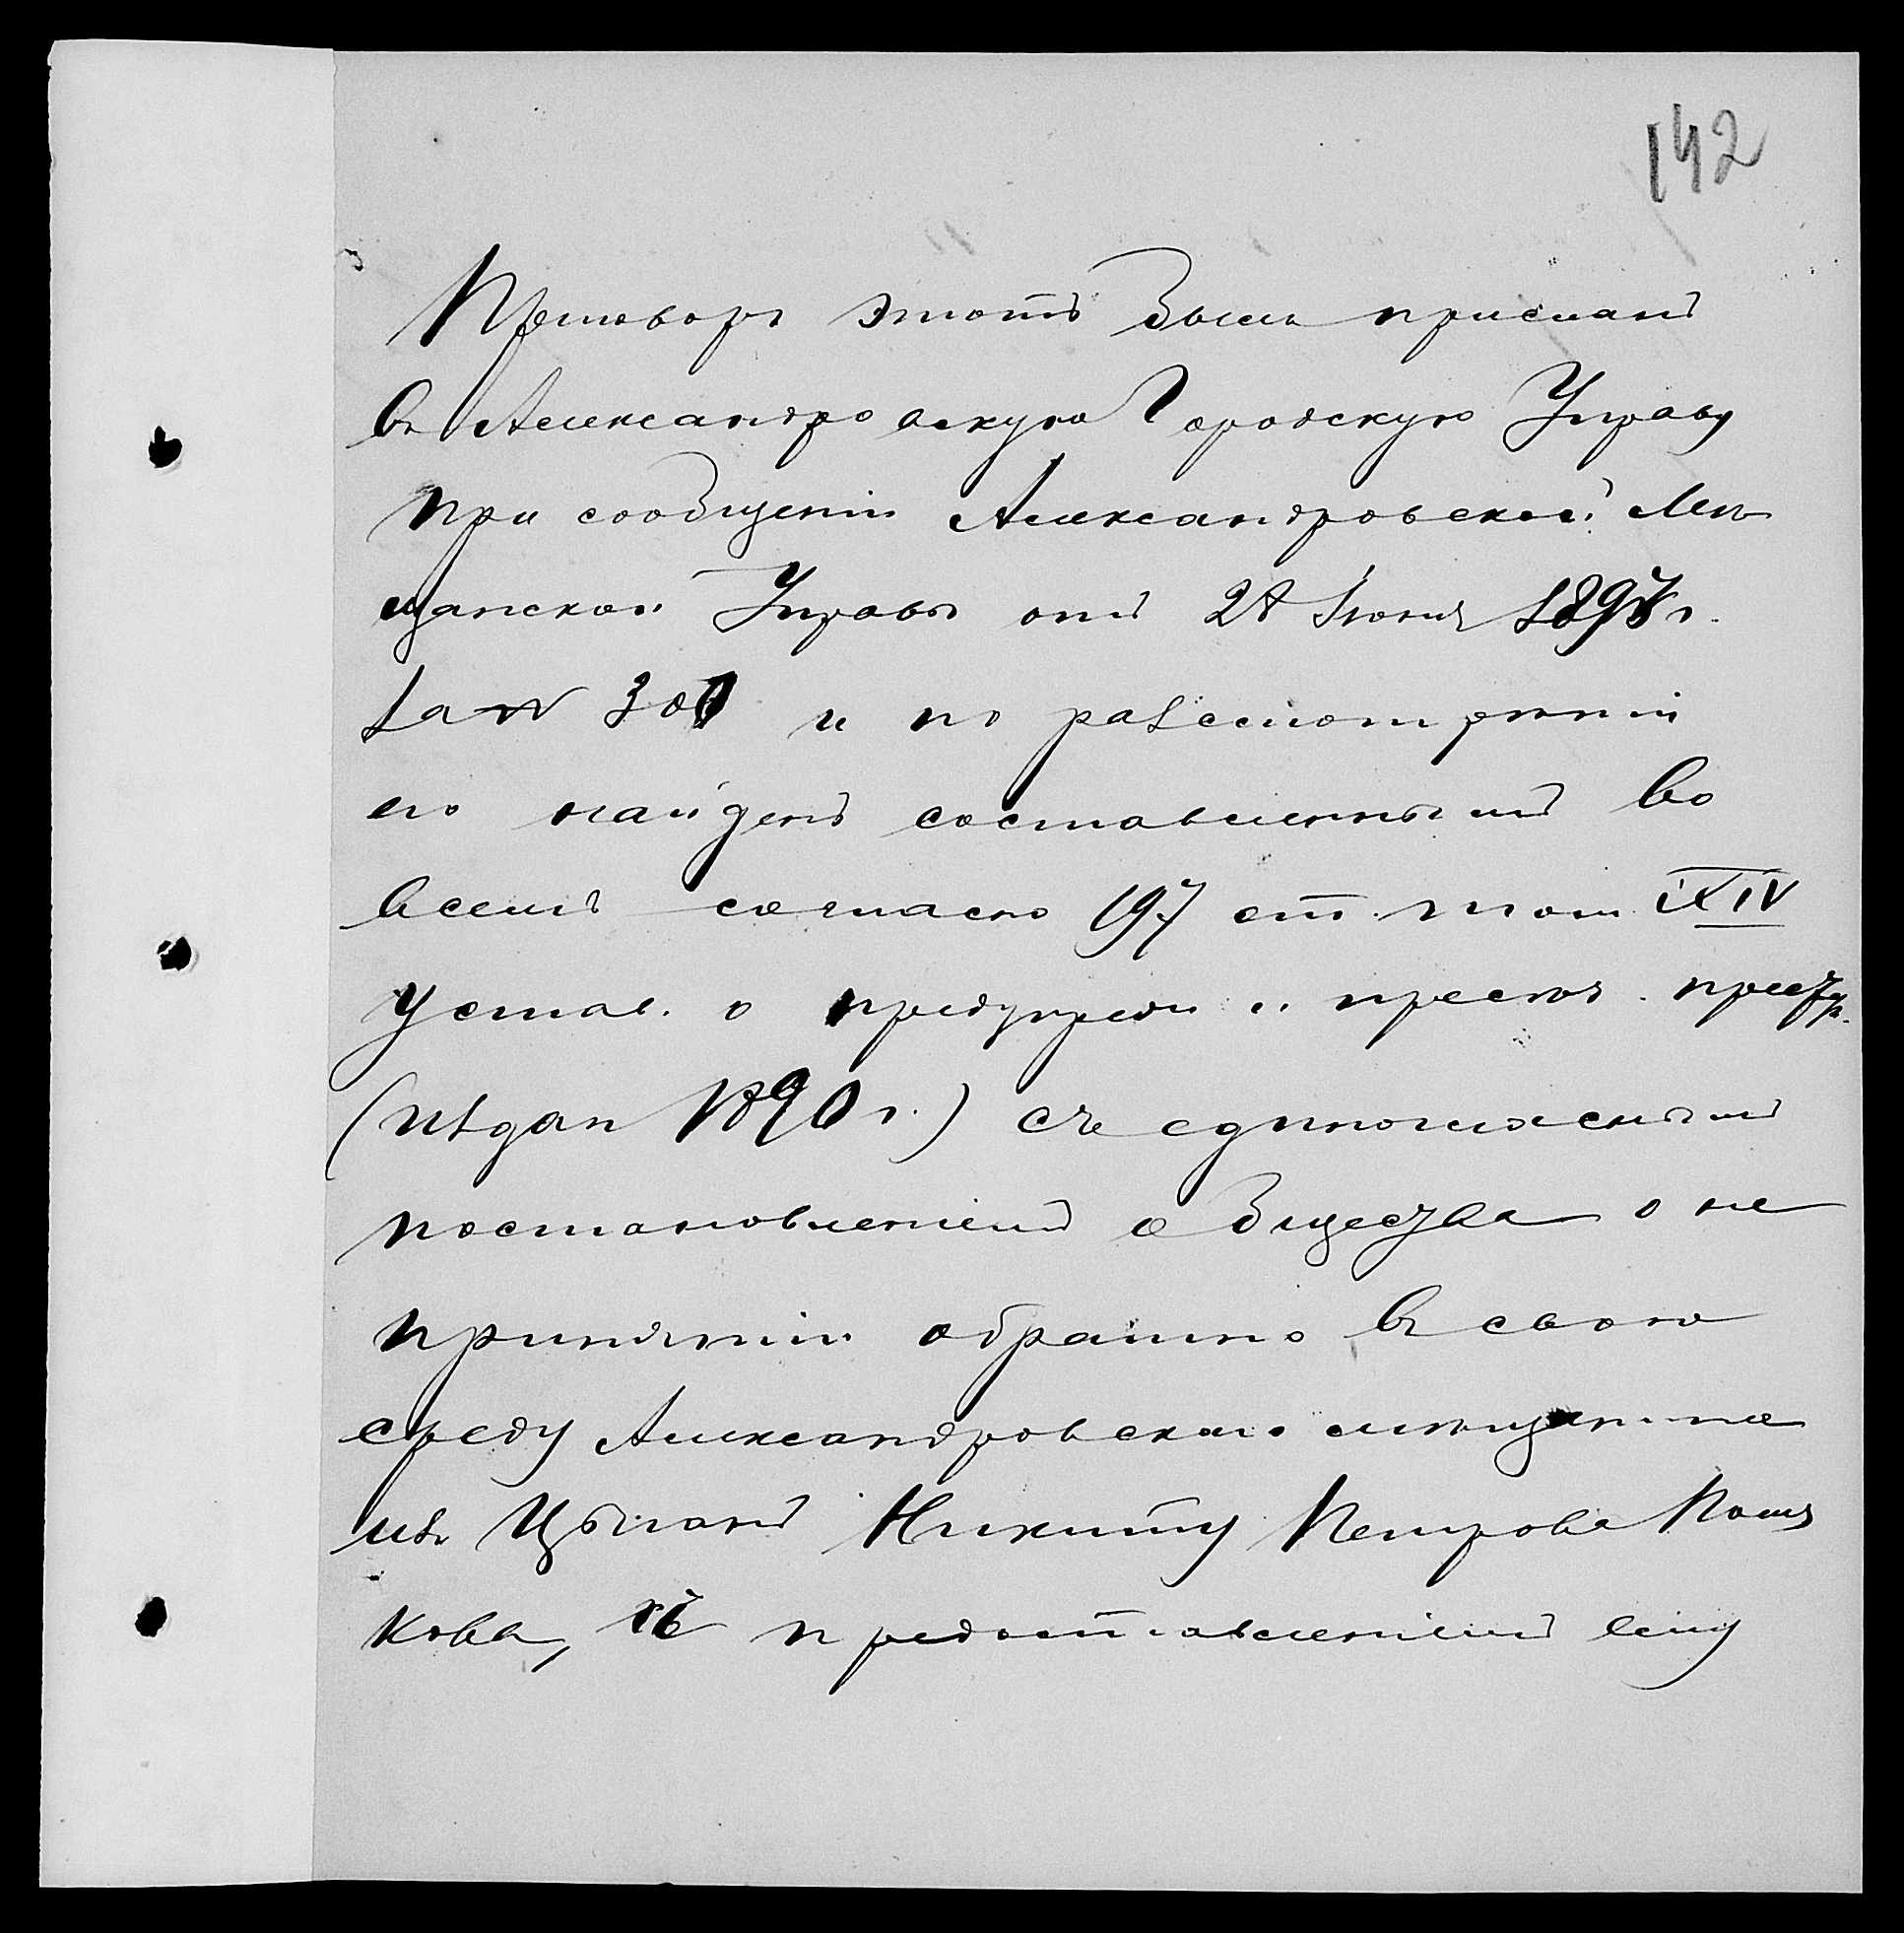 142
Приговоръ этотъ былъ присланъ
въ Александровскую Городскую Управу
при сообщеніи Александровской Мѣ
щанской Управы отъ 28 Іюня 1897 г.
за № 301 и по разсмотреніи
его найденъ составленнымъ во
всемъ согласно 197 ст. том. XIV
Устав. о предупрежд. и пресѣч. преступ.
(издан 1890 г.) съ единогласнымъ
постановленіемъ общества о не
принятіи обратно въ свою
среду Александровскаго мѣщанина
изъ Цыганъ Никиту Петрова Поля
кова, съ предоставленіемъ ему